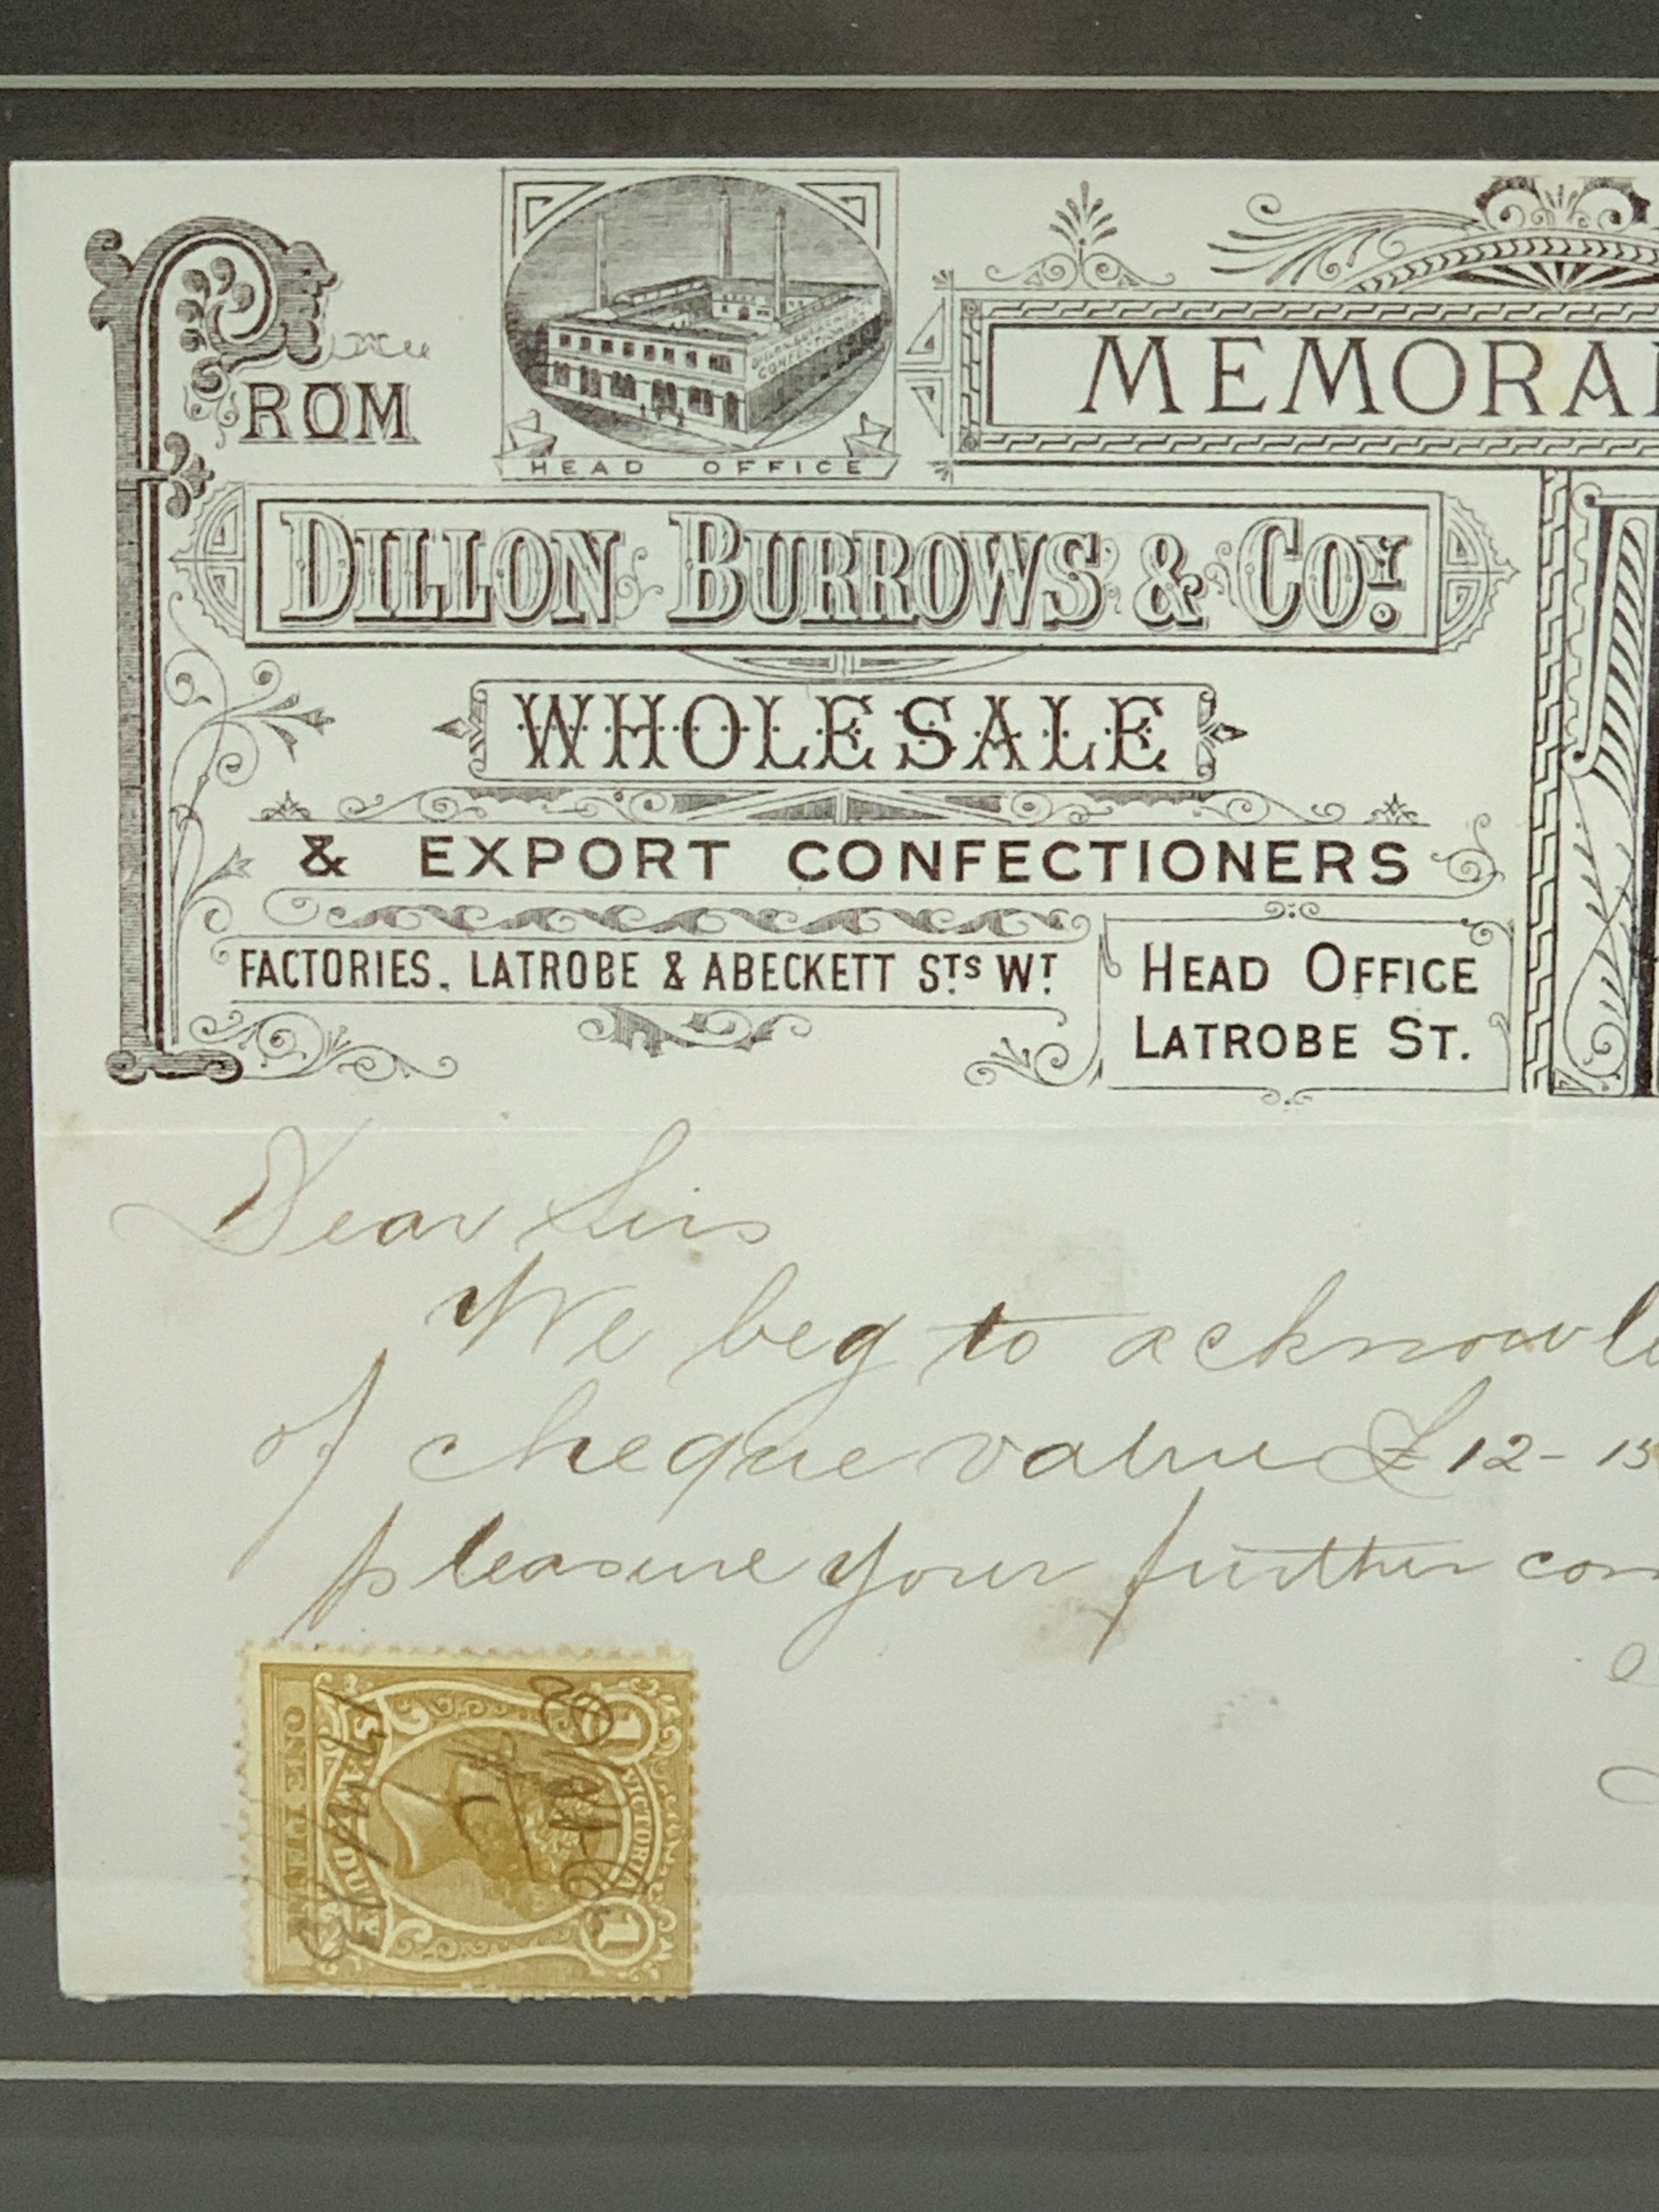 FROM
DILLON BURROWS & CONFECTIONERS
HEAD OFFICE
MEMORA
DILLON BURROWS & COY.
WHOLESALE
& EXPORT CONFECTIONERS
FACTORIES. LATROBE & ABECKETT STS WT
HEAD OFFICE
LATROBE ST.
Dear Sirs
We beg to acknowle
of cheque value £12-15
pleasure your further com
ONE PENNY
STAMP DUTY
VICTORIA
1
1